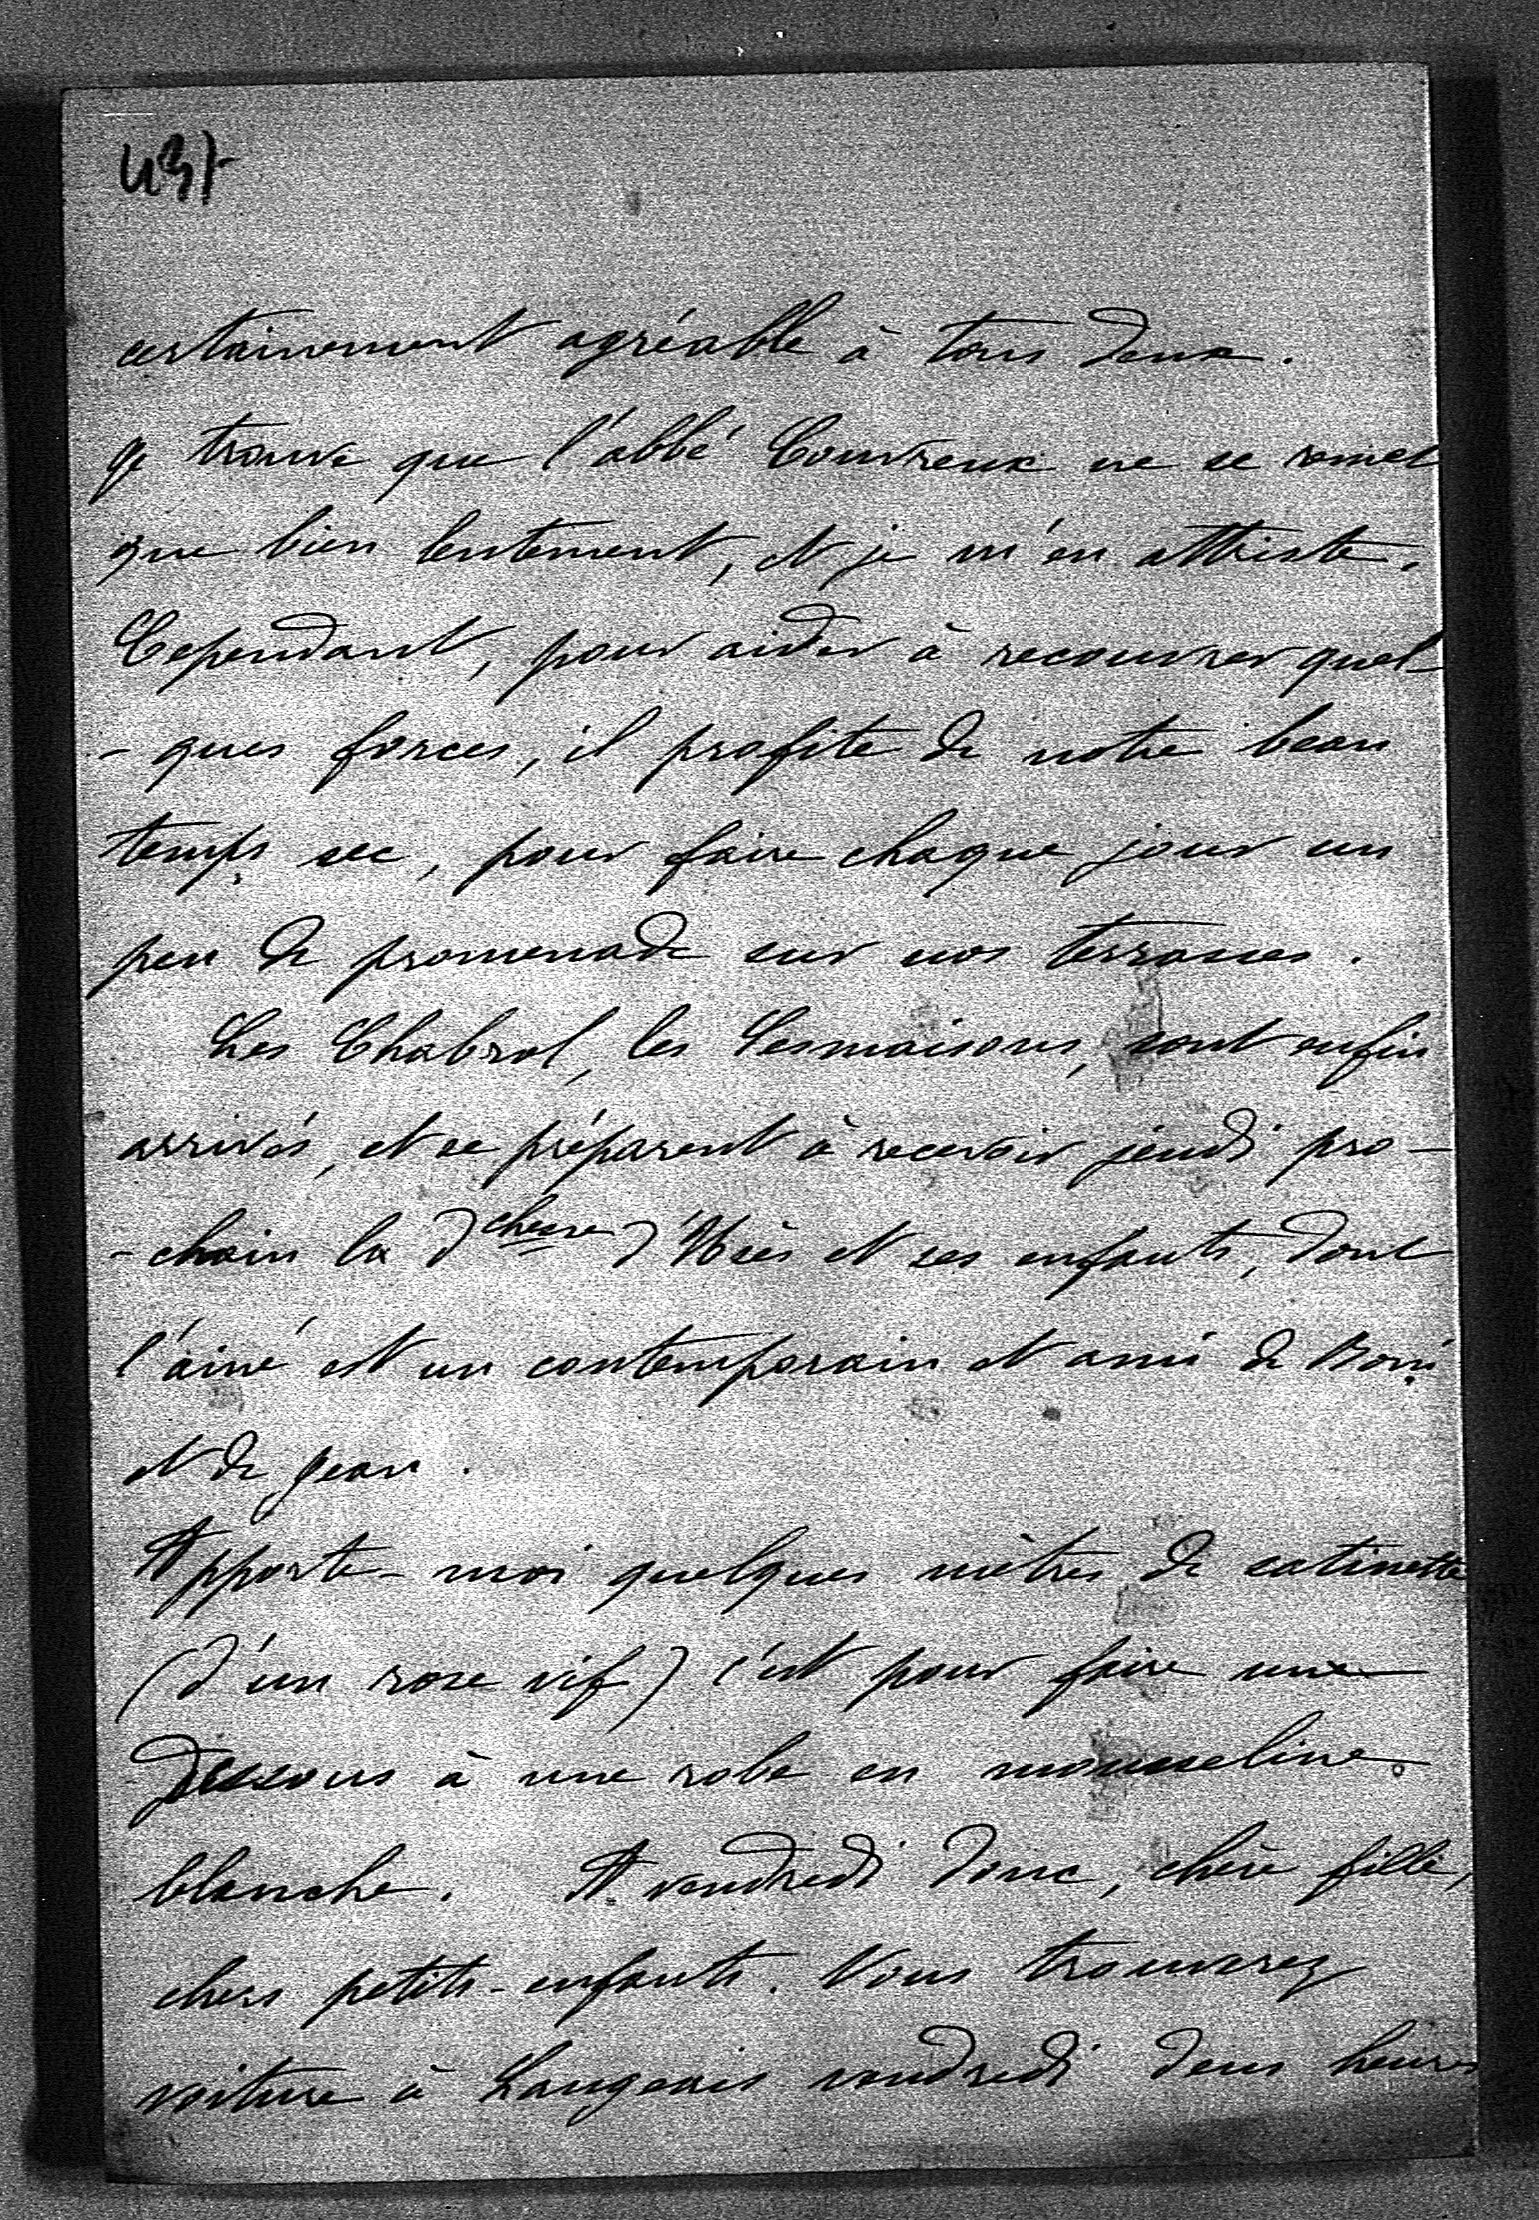 437
certainement agréable à tous deux.
Je trouve que l'abbé Couvreux ne se remet
que bien lentement, et je m'en attriste.
Cependant, pour aider à recouvrer quel
- ques forces, il profite de notre beau
temps sec, pour faire chaque jour un
peu de promenade sur nos terrasses.
Les Chabrol, les Lesmaisons, sont enfin
arrivés, et se préparent à recevoir jeudi pro-
- chain la dchesse d'Uzès et ses enfants, dont
l'ainé est un contemporain et ami de Boni
et de Jean.
Apporte-moi quelques mètres de satinette
(d'un rose vif) c'est pour faire une
dessous à une robe en mousseline
blanche. A vendredi donc, chère fille,
chers petits-enfants. Vous trouverez
voiture à Langeais vendredi deux heures